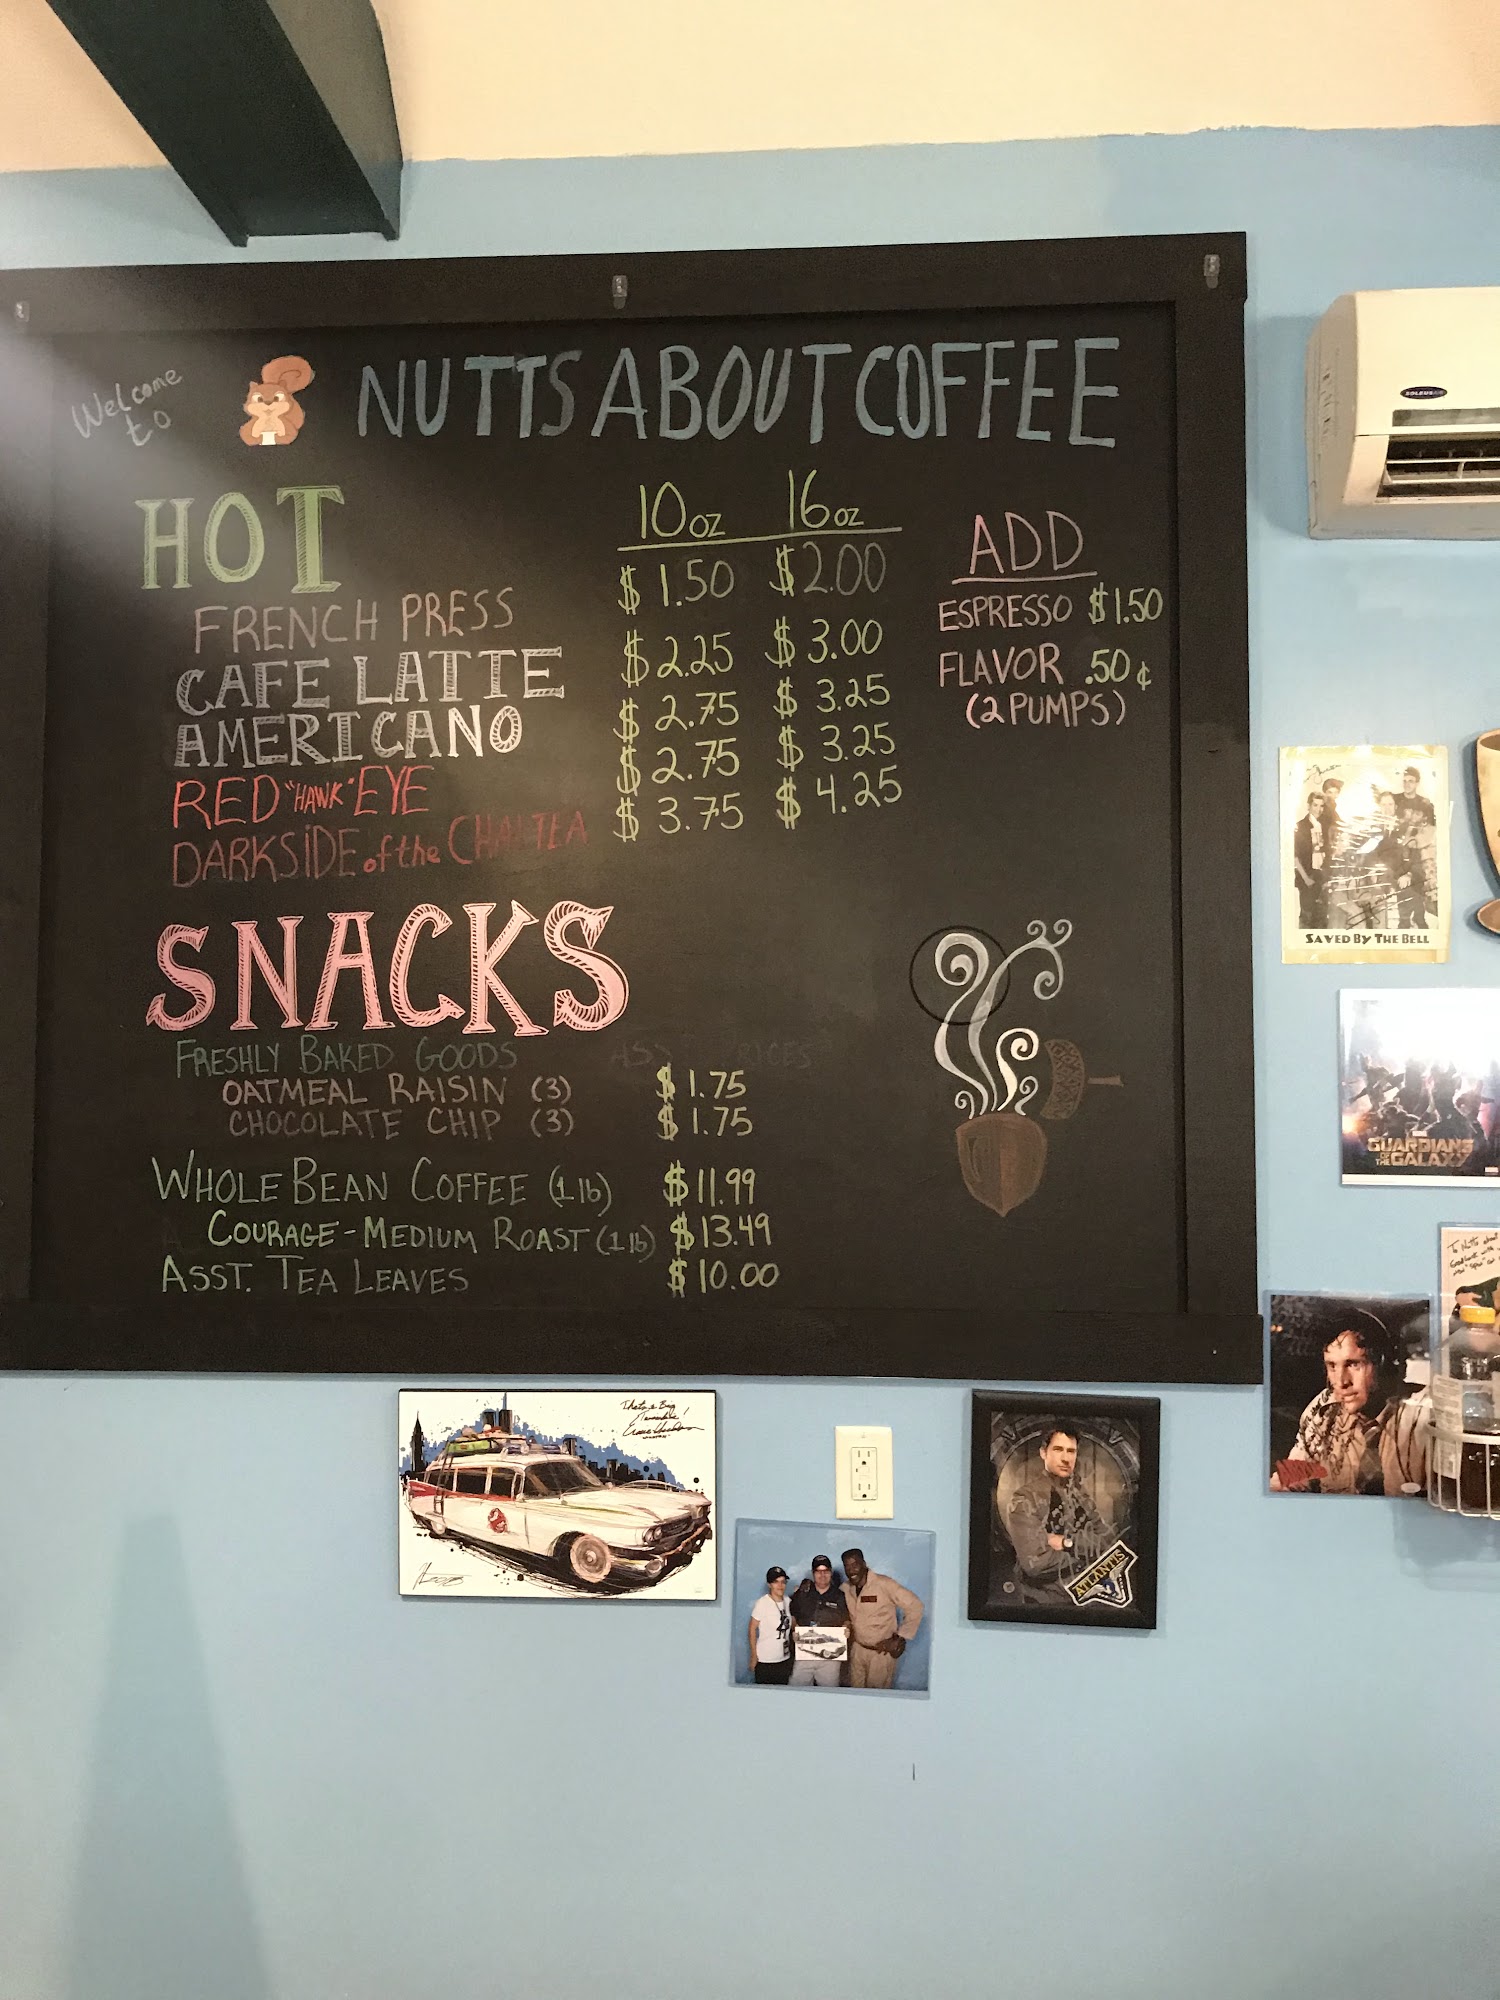 Welcome to
NUTTS ABOUT COFFEE
HOT
10oz 16oz
FRENCH PRESS $1.50 $2.00
CAFE LATTE $2.25 $3.00
AMERICANO $2.75 $3.25
RED "HAWK" EYE $2.75 $3.25
DARKSIDE of the CHAI TEA $3.75 $4.25
ADD
ESPRESSO $1.50
FLAVOR .50¢
(2 PUMPS)
SNACKS
FRESHLY BAKED GOODS
OATMEAL RAISIN (3) $1.75
CHOCOLATE CHIP (3) $1.75
WHOLE BEAN COFFEE (1 lb) $11.99
COURAGE - MEDIUM ROAST (1 lb) $13.49
ASST. TEA LEAVES $10.00
SOLEUSAIR
SAVED BY THE BELL
GUARDIANS
OF THE GALAXY
ATLANTIS